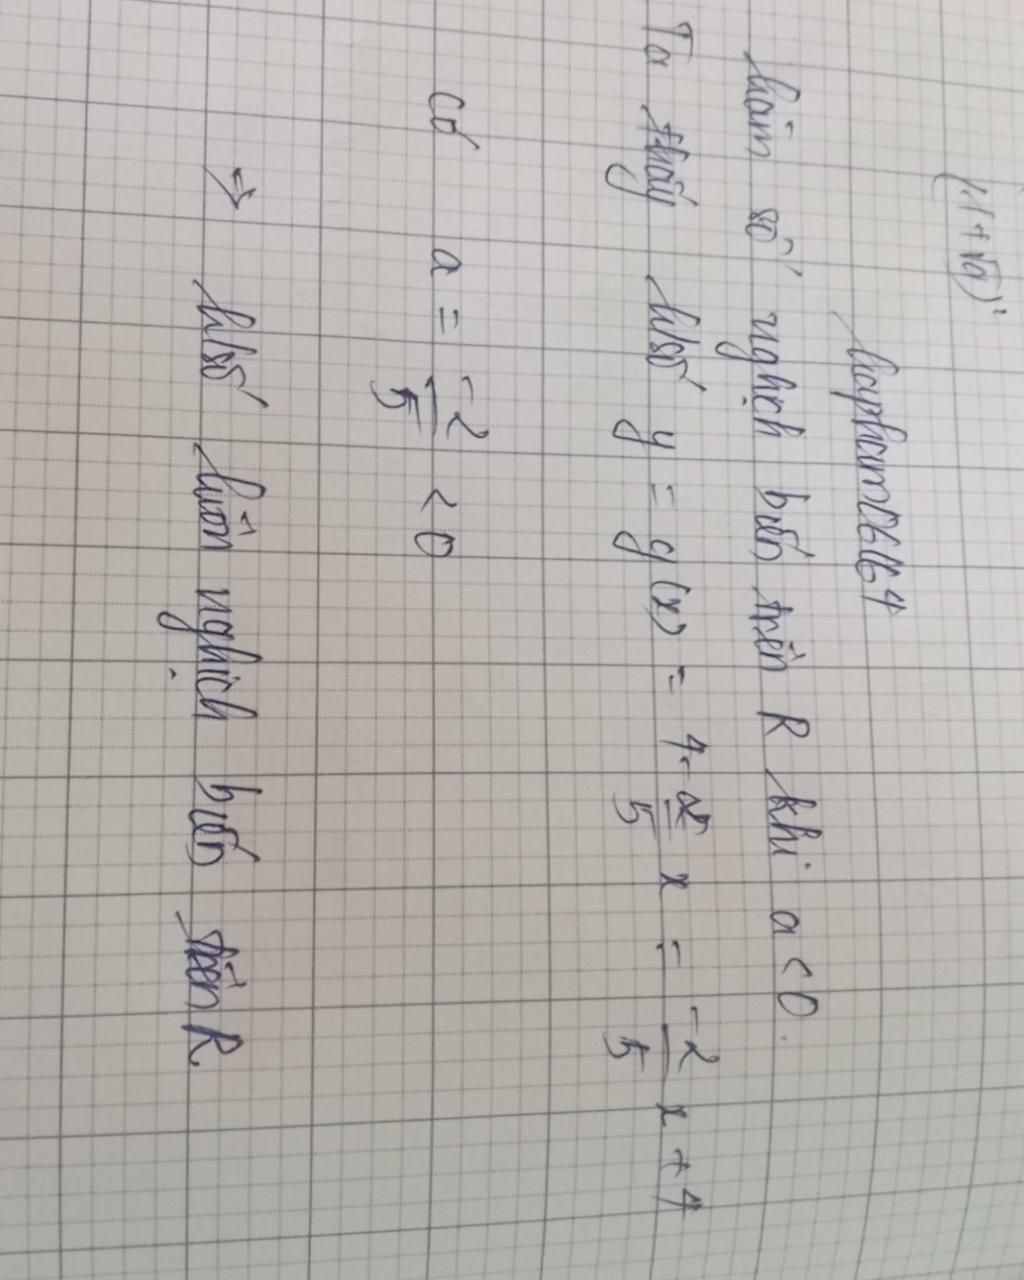 (1+√a)²
hapham06164
hàm số nghịch biến trên R khi a < 0.
Ta thấy h/số y = g(x) = 4 - 2/5 x = -2/5 x + 4
có a = -2/5 < 0
⇒ h/số luôn nghịch biến trên R